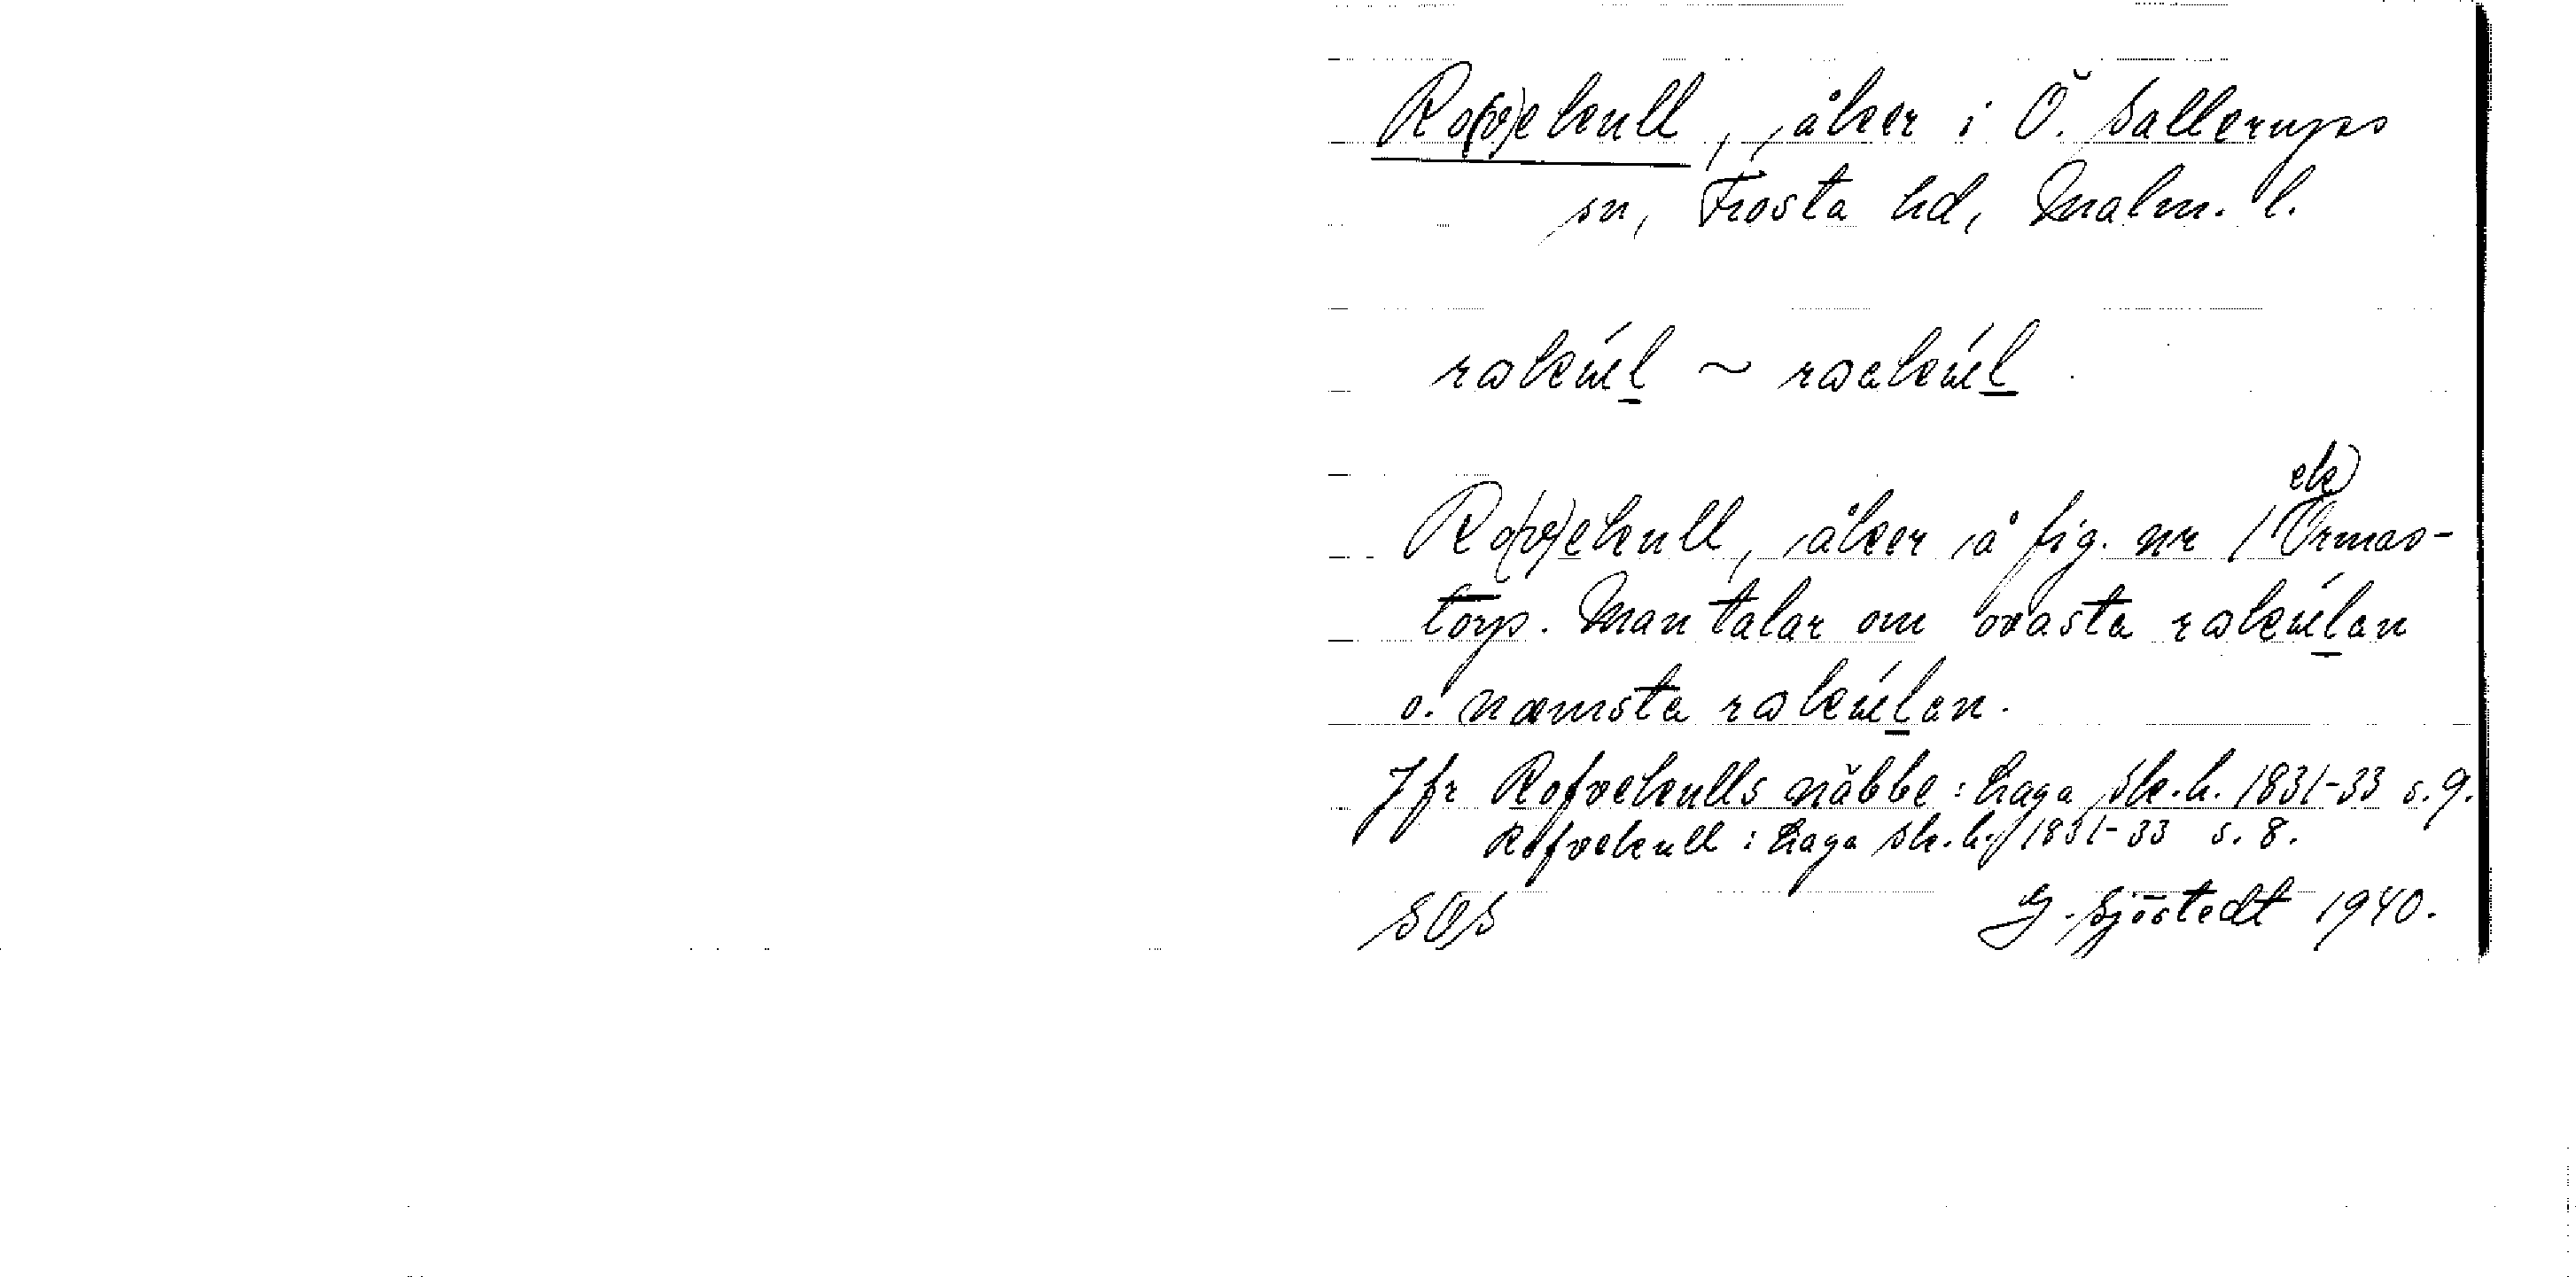 Ro(v)ekull, åker i Ö. Sallerups
sn, Frosta hd, Malm. l.
rωkúl ~ rωakúl
Ro(v)ekull, åker å fig. nr 1 (ek) Ormas-
torp. Man talar om ovasta rωkúlan
o. næmsta rωkúlan.
Jfr Rofvekulls näbbe: Laga sk.h. 1831-33 s. 9.
Rofvekull: Laga sk.h. 1831-33 s. 8.
SOS G. Sjöstedt 1940.